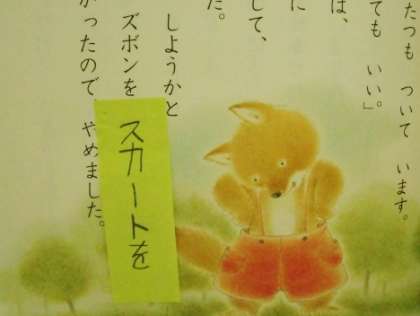 たつも ついて います。
ても いい」。
は、
に
して、
た。
しようかと
ズボンを
かったので やめました。
スカートを